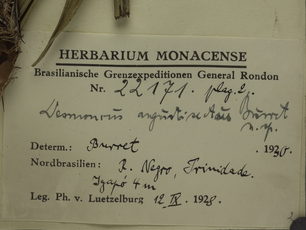 HERBARIUM MONACENSE
Brasilianische Grenzexpeditionen General Rondon
Nr. 22171.
Desmoncus Burret
n. sp.
Determ.: Burret 1930.
Nordbrasilien: R. Negro, Trinidade.
Igapó 4 m
Leg. Ph. v. Luetzelburg 12 IX 1928.